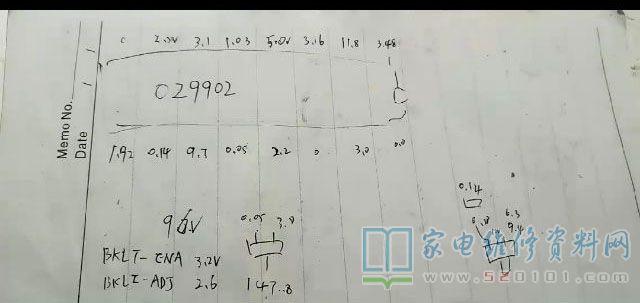 0 2.2V 3.1 1.03 5.0V 3.16 11.8 3.48
Memo No.
Date
OZ9902
1.92 0.14 9.7 0.05 2.2 0 3.0 0.0
0.14 0
96V 0.05 3.0
6.3
9.4
BKLT-ENA 3.2V
BKLT-ADJ 2.6 147.8
家电维修资料网
www.520101.com